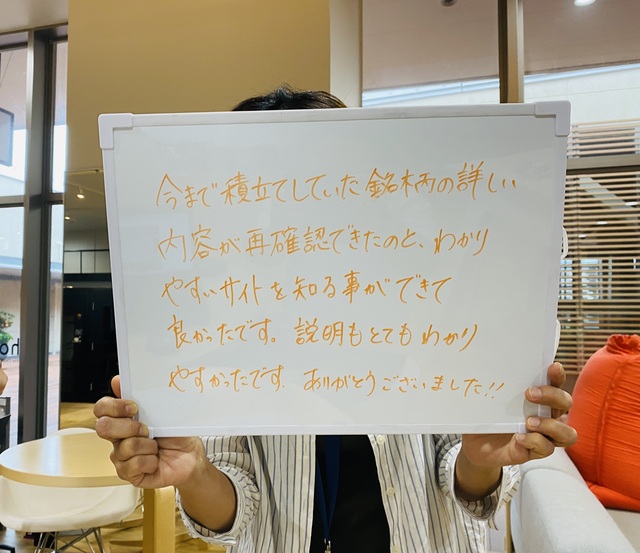 今まで積立てしていた銘柄の詳しい
内容が再確認できたのと、わかり
やすいサイトを知る事ができて
良かったです。説明もとてもわかり
やすかったです。ありがとうございました!!
ho